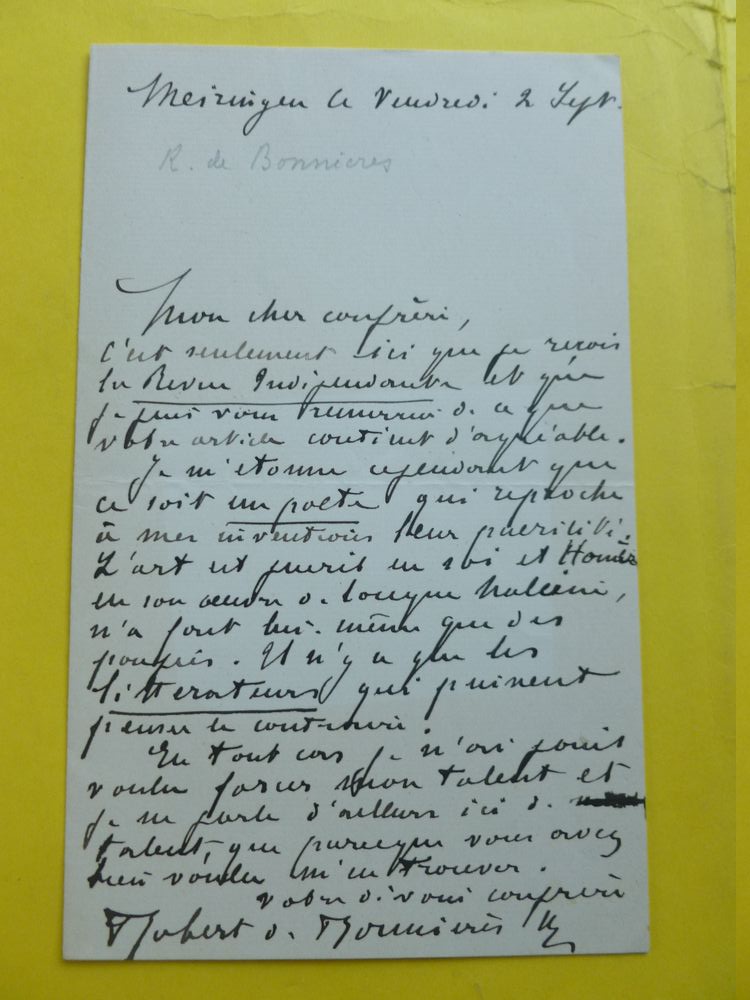 Meiringen le Vendredi 2 Sept.
R. de Bonnieres
Mon cher confrère,
C'est seulement ici que je reçois
la Revue Indépendante et que
je puis vous remercier de ce que
votre article contient d'agréable.
Je m'étonne cependant que
ce soit un poète qui reproche
à mes inventions leur puérilité.
L'art est puéril en soi et Homère
en son œuvre de longue haleine,
n'a fait lui-même que des
poupées. Il n'y a que les
littérateurs qui puissent
penser le contraire.
En tout cas je n'ai point
voulu forcer mon talent et
je ne parle d'ailleurs ici de
talent, que parceque vous avez
bien voulu m'en trouver.
votre dévoué confrère
Robert de Bonnières